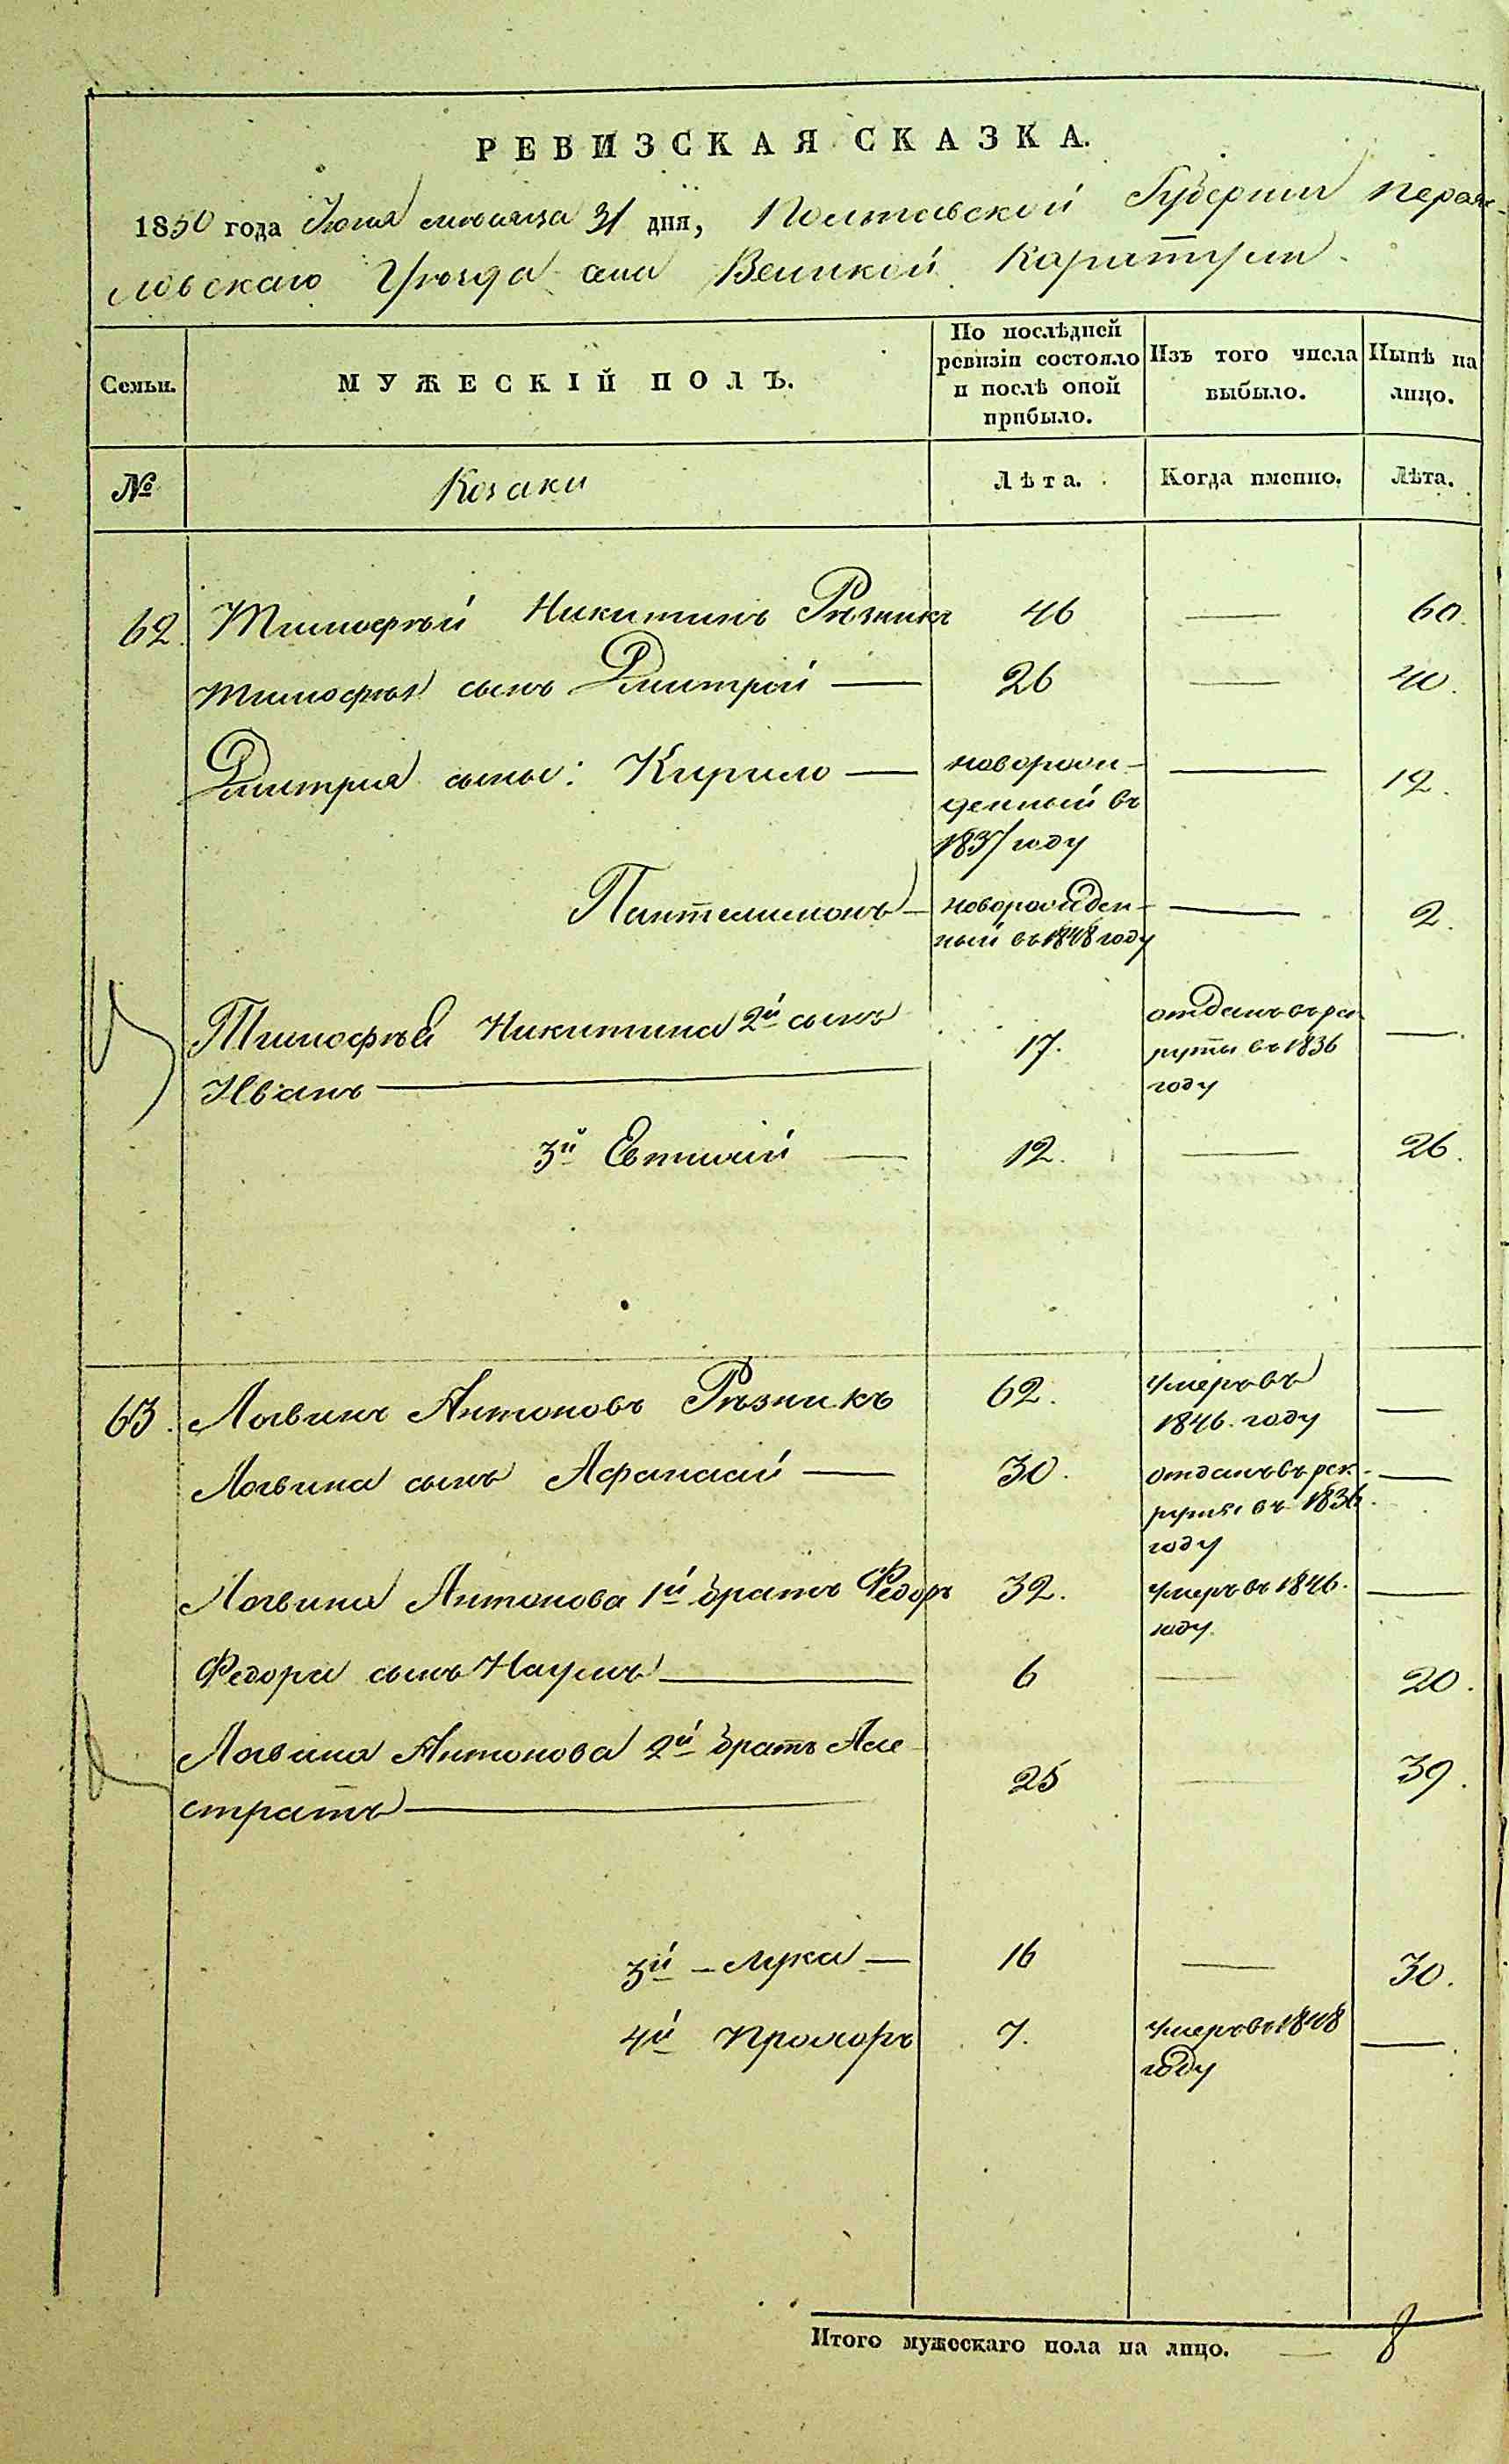 РЕВИЗСКАЯ СКАЗКА.
1850 года Іюля мѣсяца 31 дня, Полтавской Губерніи Перея-
ловскаго Уѣзда села Великой Каратули
Семьи.
МУЖЕСКІЙ ПОЛЪ.
По послѣдней
ревизіи состояло
и послѣ оной
прибыло.
Изъ того числа
выбыло.
Нынѣ на
лицо.
№
Козаки
Лѣта.
Когда именно.
Лѣта.
62. Тимофѣй Никитинъ Рѣзникъ 46 — 60.
Тимофѣя сынъ Дмитрій — 26 — 40.
Дмитрія сыны: Кирило — новорож-
денный въ
1837 году — 12.
Пантелимонъ — новорожден-
ный въ 1848 году — 2.
Тимофѣя Никитина 2й сынъ
Иванъ — 17. отданъ въ ре
круты въ 1836
году —
3й Евтихій — 12. — 26.
63. Логвинъ Антоновъ Рѣзникъ 62. умеръ въ
1846. году —
Логвина сынъ Афанасій — 30. отданъ въ рек-
руты въ 1836.
году —
Логвина Антонова 1й братъ Федоръ 32. умеръ въ 1846.
году —
Федора сынъ Наумъ — 6 — 20.
Логвина Антонова 2й братъ
стратъ — 25 — 39.
3й — Лука — 16 — 30.
4й Прохоръ 7. умеръ въ 1848
году —
Итого мужескаго пола на лицо. — 8